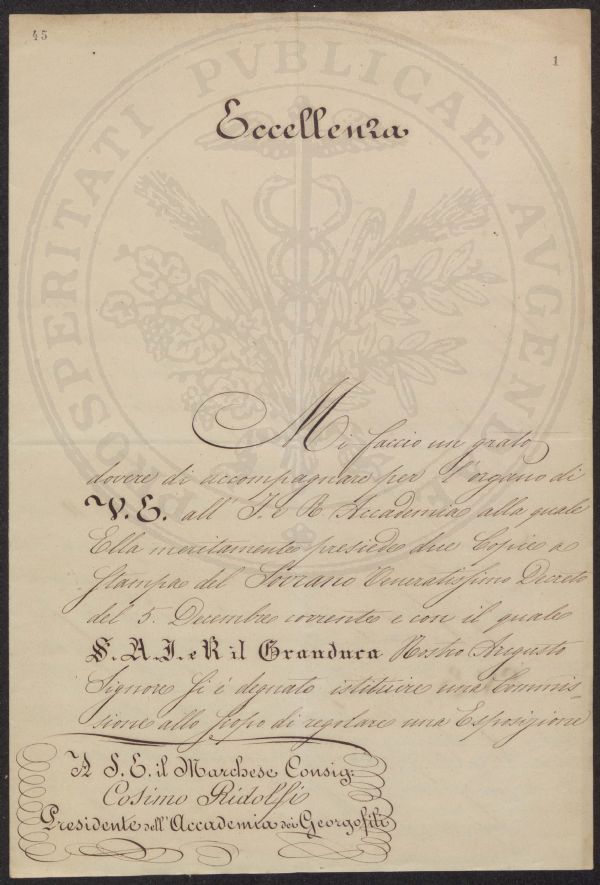 45
1
PROSPERITATI PVBLICAE AVGENDAE
Eccellenza
Mi faccio un grato
dovere di accompagnare per l'organo di
V. E. all' I. e R. Accademia alla quale
Ella meritamente presiede due Copie a
Stampa del Sovrano Veneratissimo Decreto
del 5. Decembre corrente e con il quale
S. A. I. e R il Granduca Nostro Augusto
Signore si è degnato istituire una Commis=
sione allo scopo di regolare una Esposizione
A S. E. il Marchese Consig:
Cosimo Ridolfi
Presidente dell'Accademia dei Georgofili